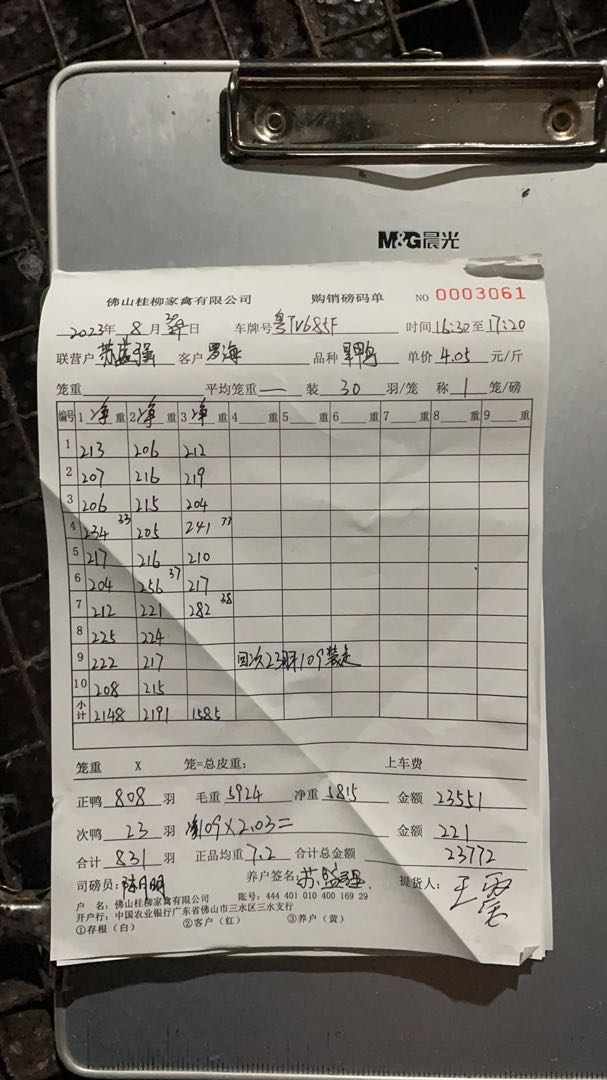 M&G晨光
佛山桂柳家禽有限公司 购销磅码单 NO 0003061
2023年 8 月 30 日 车牌号 粤TV685F 时间 16:30 至 17:20
联营户 苏益强 客户 罗海 品种 鸭 单价 4.05 元/斤
笼重 平均笼重 — 装 30 羽/笼 称 1 笼/磅
编号 1 净 重 2 净 重 3 净 重 4 重 5 重 6 重 7 重 8 重 9 重
1 213 206 212
2 207 216 219
3 206 215 204
4 234 33 205 241 33
5 217 216 210
6 204 256 37 217
7 212 221 282 38
8 225 224
9 222 217 次23 109装走
10 208 215
小计 2148 2191 1585
笼重 X 笼=总皮重: 上车费
正鸭 808 羽 毛重 5924 净重 5815 金额 23551
次鸭 23 羽 109×2.03= 金额 221
合计 831 羽 正品均重 7.2 合计总金额 23772
司磅员: 陈月明 养户签名: 苏益强 提货人: 王
户 名: 佛山桂柳家禽有限公司 账号: 444 401 010 400 169 29
开户行: 中国农业银行广东省佛山市三水区三水支行
①存根（白） ②客户（红） ③养户（黄）